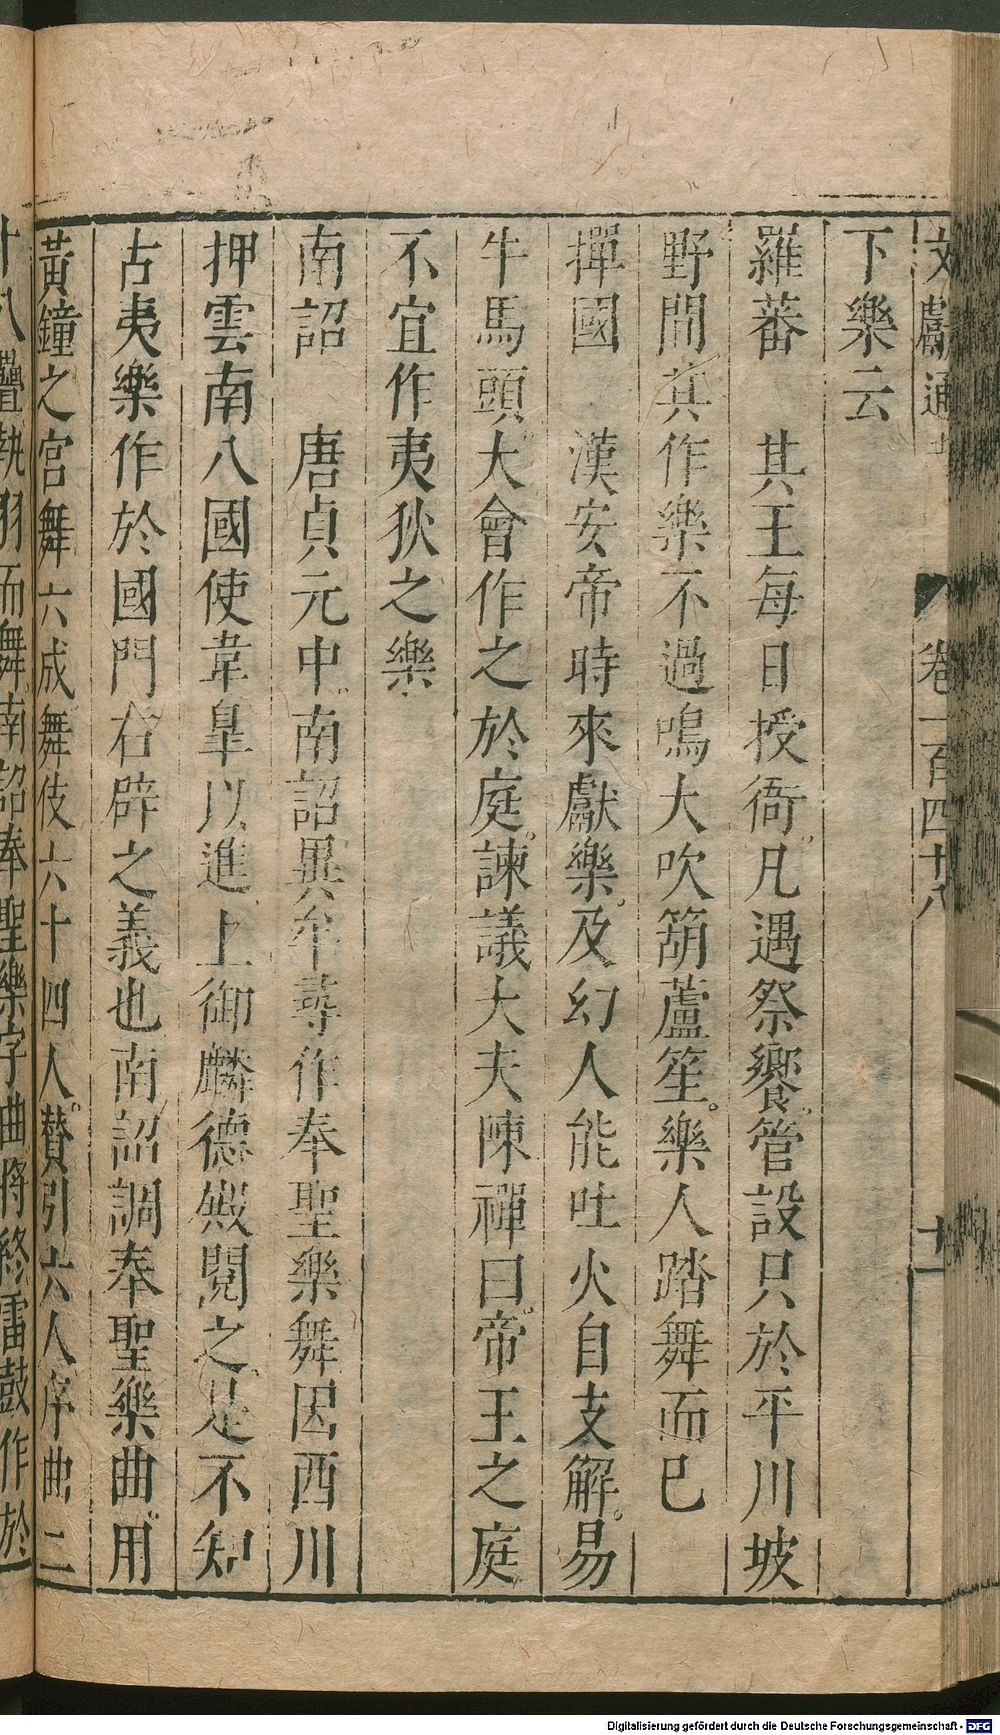 文獻通 卷一百四十八 十一
下樂云
羅蕃 其王每日授衙凡遇祭饗管設只於平川坡
野間其作樂不過鳴大吹葫蘆笙樂人踏舞而已
撣國 漢安帝時來獻樂及幻人能吐火自支解易
牛馬頭大會作之於庭諫議大夫陳禪曰帝王之庭
不宜作夷狄之樂
南詔 唐貞元中南詔異牟尋作奉聖樂舞因西川
押雲南八國使韋臯以進上御麟德殿閱之是不知
古夷樂作於國門右辟之義也南詔調奉聖樂曲用
黃鐘之宮舞六成舞伎六十四人贊引六人序曲二
十八疊執羽而舞南詔奉聖樂字曲將終雷鼓作於
Digitalisierung gefördert durch die Deutsche Forschungsgemeinschaft - DFG